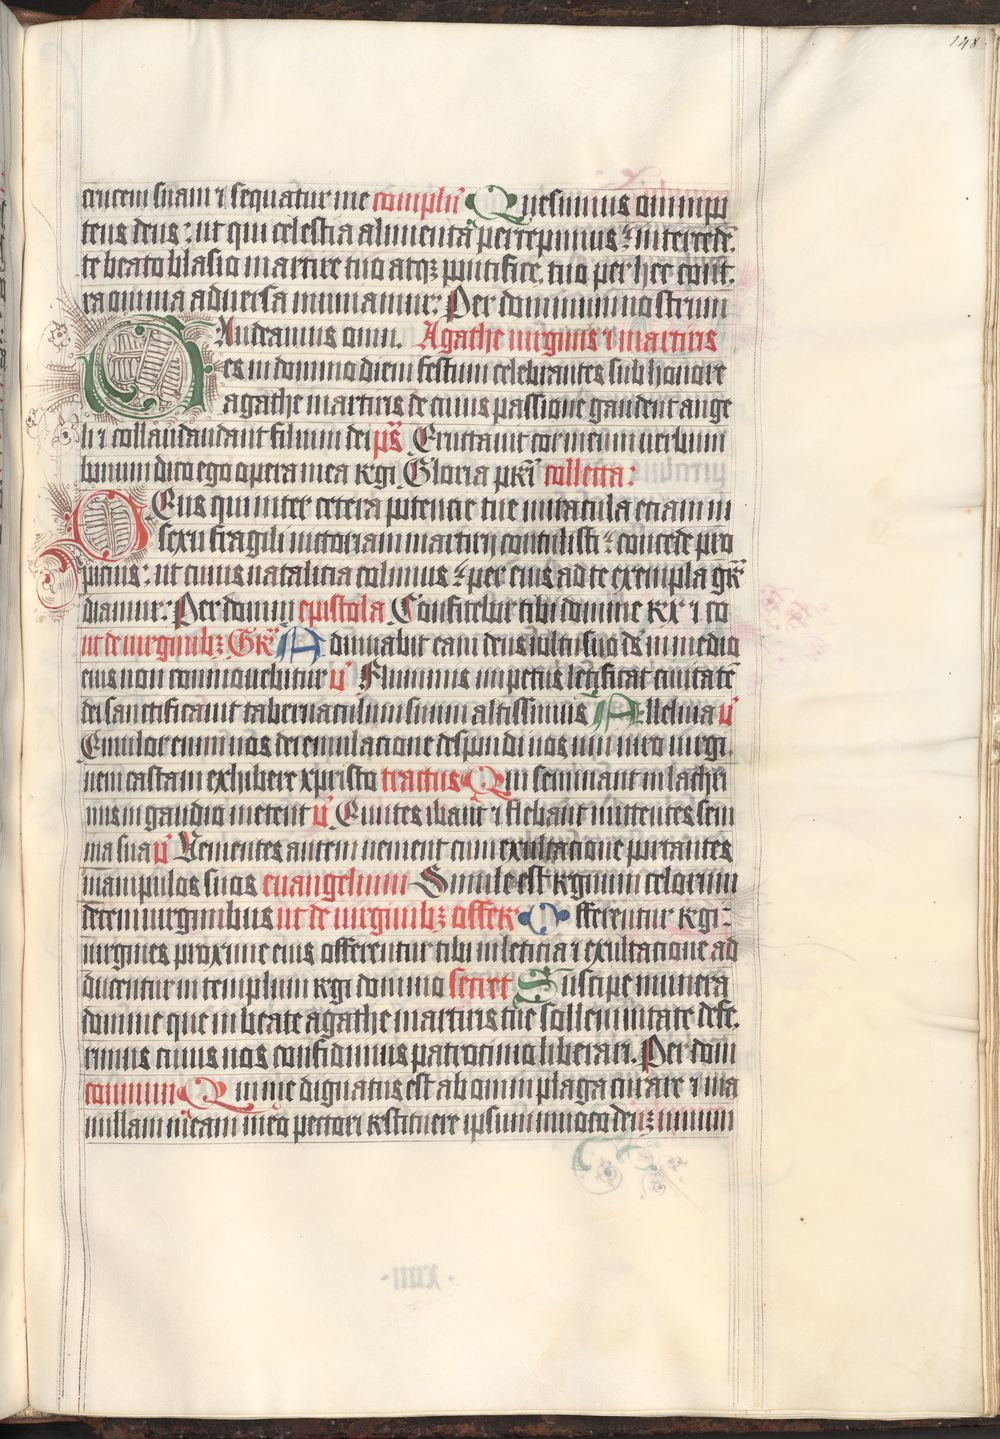 148
crucem suam ⁊ sequatur me complẽ Quesumus omnipo
tens deus: ut qui celestia alimenta percepimus: interceden
te beato blasio martire tuo atqꝫ pontifice tuo per hec cont
ra omnia aduersa muniamur: Per dominum nostrum
Gaudeamus omn. Agathe uirginis ⁊ martiris
es in domino diem festum celebrantes sub honore
agathe martiris de cuius passione gaudent ange
li ⁊ collaudaudant filium dei ps̃ Eructauit cor meum uerbum
bonum dico ego opera mea regi Gloria pr̃i collecta:
Deus qui inter cetera potencie tue miracula eciam in
sexu fragili uictoriam martirii contulisti: concede pro
picius: ut cuius natalicia colimus: per eius ad te exempla gra
diamur: Per domin epistola Confitebor tibi domine rex r̃ co
ut de uirginibꝫ Gr̃ Adiuuabit eam deus uultu suo ds̃ in medio
eius non commouebitur v̉ Fluminis impetus letificat ciuitatẽ
dei sanctificauit tabernaculum suum altissimus Alleluia v̉
Emulor enim uos dei emulacione despondi uos uni uiro uirgi
nem castam exhibere xpristo tractus Qui seminant in lachri
mis in gaudio metent v̉ Euntes ibant ⁊ flebant mittentes sem
ina sua v̉ Uenientes autem uenient cum exultacione portantes
manipulos suos euangelium Simile est regnum celorum
decem uirginibus ut de uirginibꝫ offer̃ Offerentur regi
uirgines proxime eius offerentur tibi in leticia ⁊ exultacione ad
ducentur in templum regi domino secret Suscipe munera
domine que in beate agathe martiris tue sollemnitate defe
rimus cuius nos confidimus patrocinio liberari. Per dom
commun Qui me dignatus est ab omni plaga curare ⁊ ma
millam meam meo pectori restituere ipsum inuoco deũ uiuum